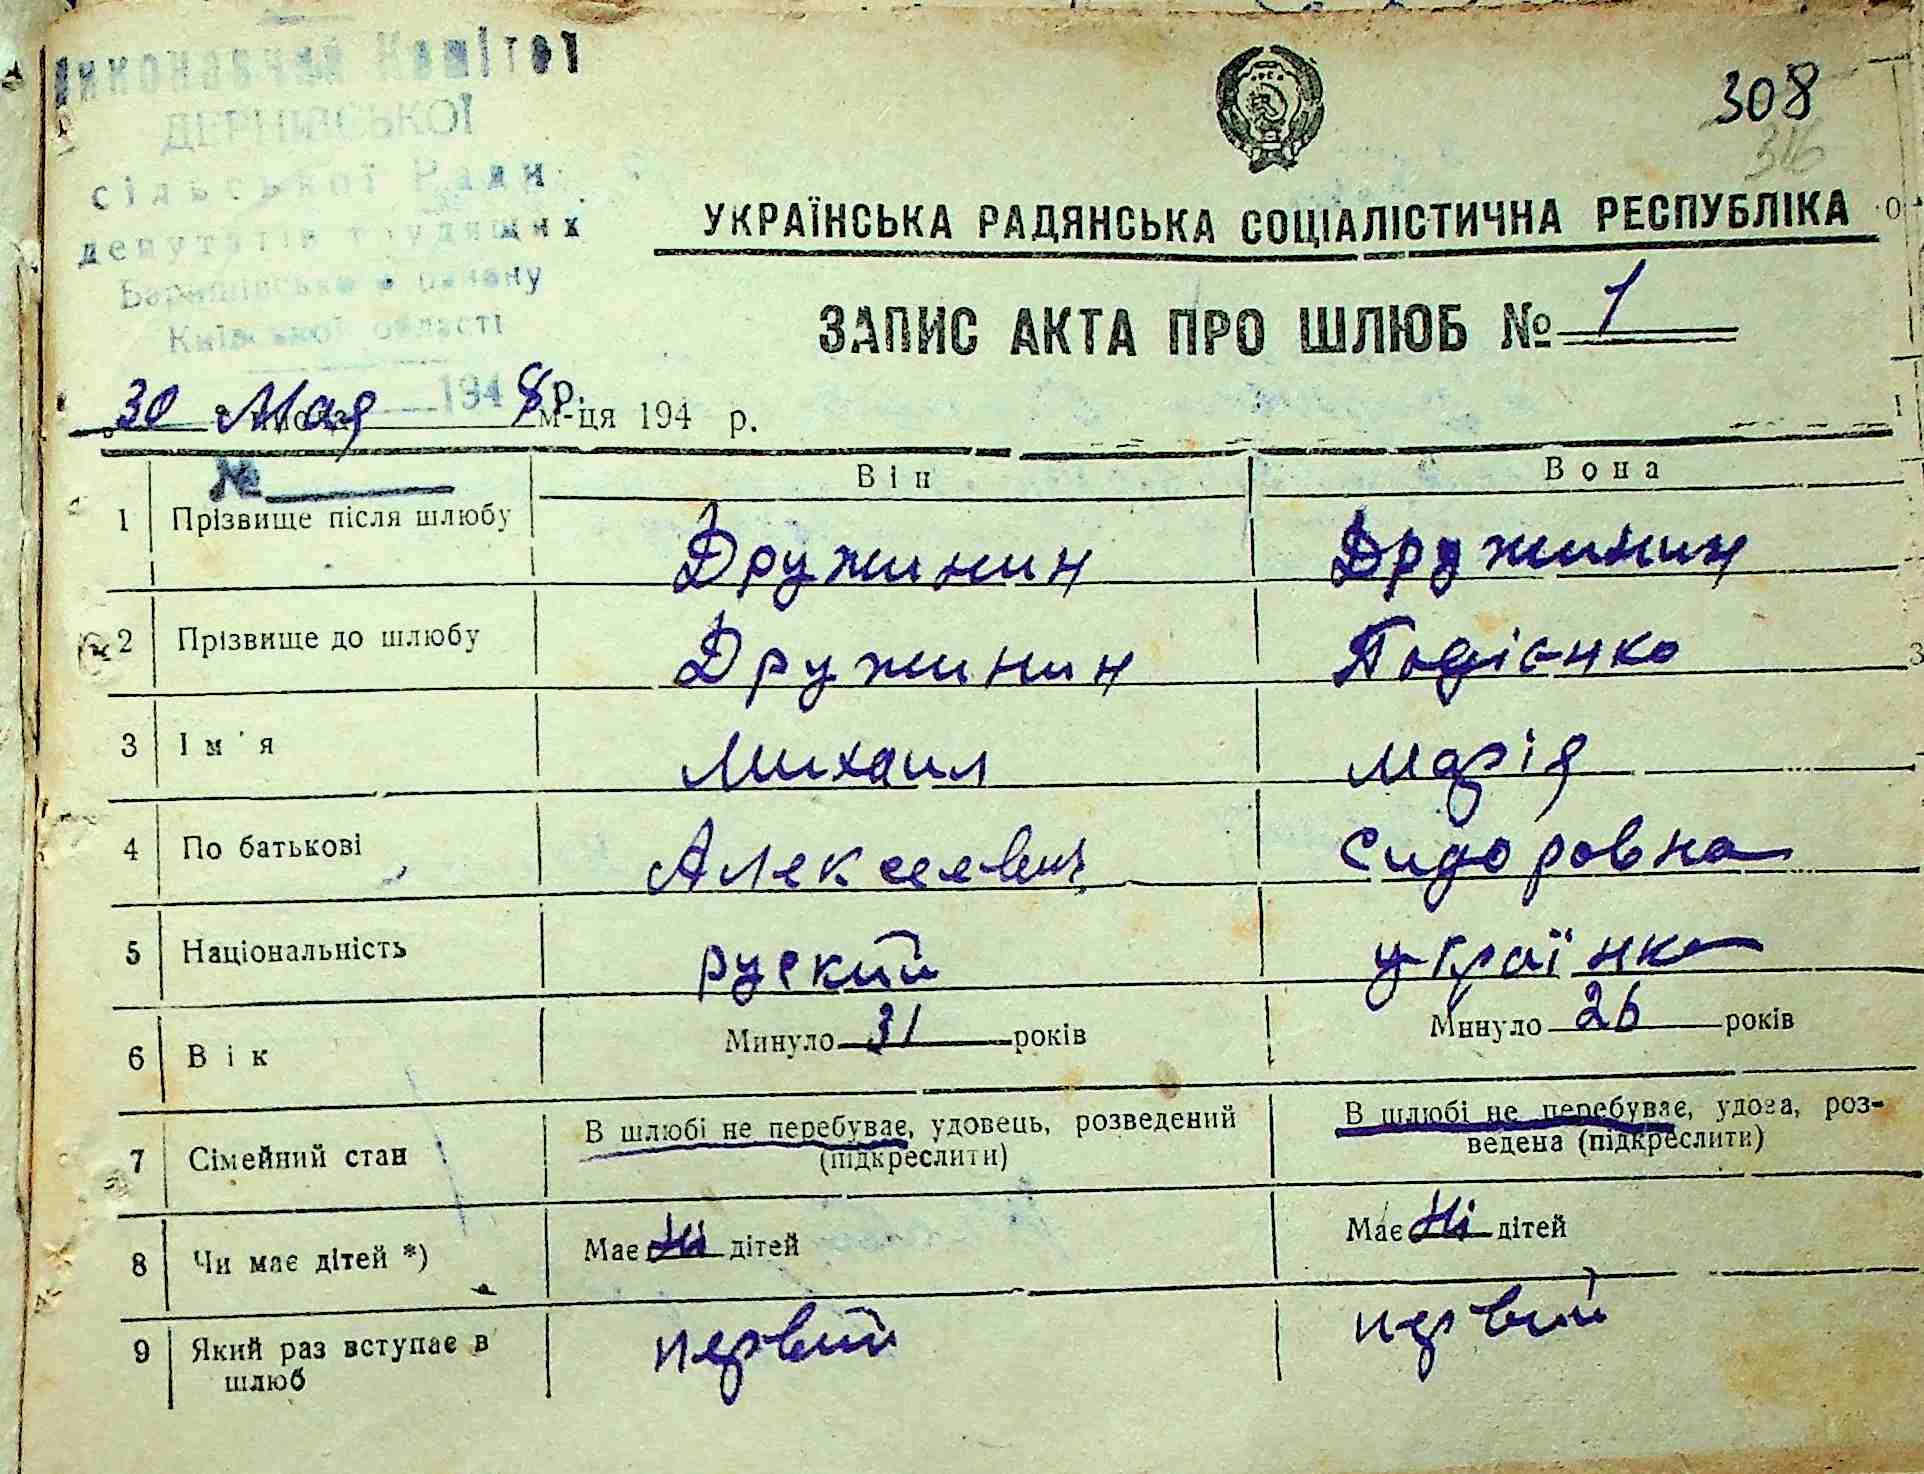 Виконавчий Комітет
ДЕРНІВСЬКОЇ
сільської Ради
депутатів трудящих
Баришівського району
Київської області
308
316
УКРАЇНСЬКА РАДЯНСЬКА СОЦІАЛІСТИЧНА РЕСПУБЛІКА
ЗАПИС АКТА ПРО ШЛЮБ № 1
30 Мая 1948 р.
м-ця 194 р.
№
Він Вона
1 Прізвище після шлюбу Дружинин Дружинин
2 Прізвище до шлюбу Дружинин
3 Ім'я Михаил Марія
4 По батькові Алексеевич Сидоровна
5 Національність руский українка
6 Вік Минуло 31 років Минуло 26 років
7 Сімейний стан В шлюбі не перебуває, удовець, розведений (підкреслити) В шлюбі не перебуває, удова, роз-
ведена (підкреслити)
8 Чи має дітей *) Має Ні дітей Має Ні дітей
9 Який раз вступає в первий первий
шлюб